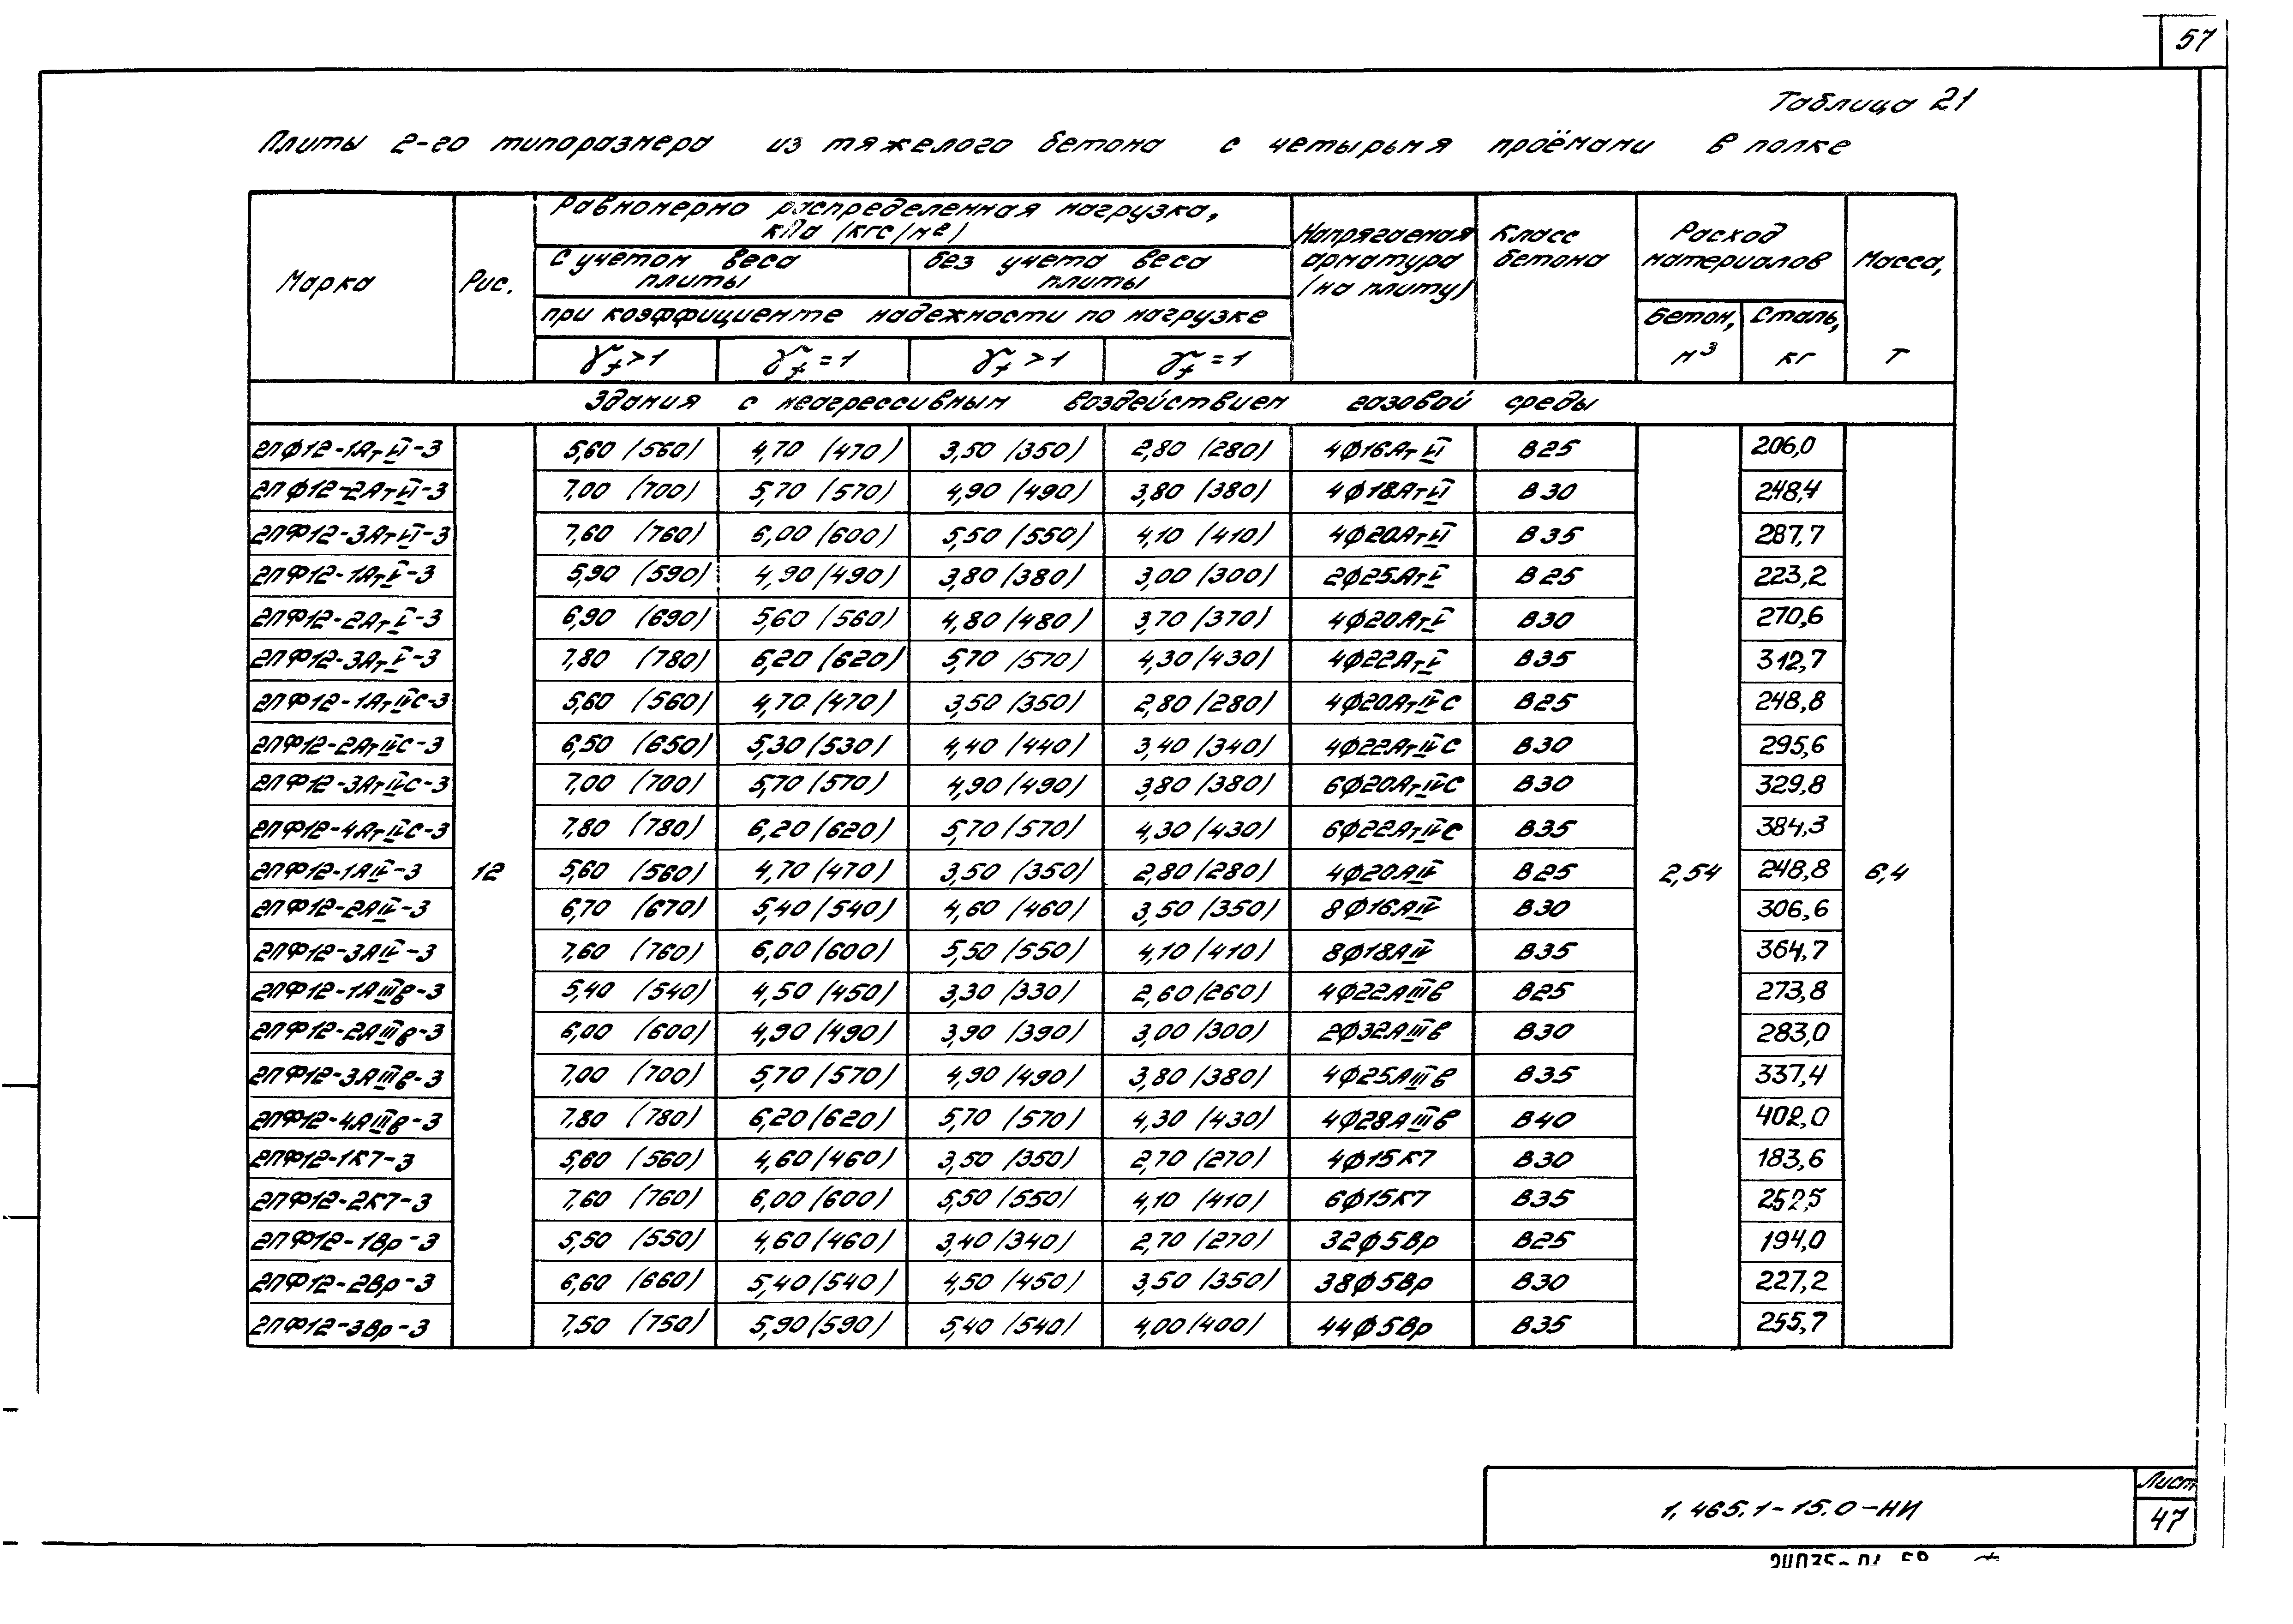 57
Таблица 21
Плиты 2-го типоразмера из тяжелого бетона с четырьмя проёмами в полке
Марка
Рис.
Равномерно распределенная нагрузка,
кПа (кгс/м²)
С учетом веса
плиты
без учета веса
плиты
при коэффициенте надежности по нагрузке
γf >1
γf =1
γf >1
γf =1
Напрягаемая
арматура
(на плиту)
Класс
бетона
Расход
материалов
Бетон,
м³
Сталь,
кг
Масса,
т
Здания с неагрессивным воздействием газовой среды
2ПФ12-1АтVI-3 5,60 (560) 4,70 (470) 3,50 (350) 2,80 (280) 4Ф16АтVI В25 206,0
2ПФ12-2АтVI-3 7,00 (700) 5,70 (570) 4,90 (490) 3,80 (380) 4Ф18АтVI В30 248,4
2ПФ12-3АтVI-3 7,60 (760) 6,00 (600) 5,50 (550) 4,10 (410) 4Ф20АтVI В35 287,7
2ПФ12-1АтV-3 5,90 (590) 4,90 (490) 3,80 (380) 3,00 (300) 2Ф25АтV В25 223,2
2ПФ12-2АтV-3 6,90 (690) 5,60 (560) 4,80 (480) 3,70 (370) 4Ф20АтV В30 270,6
2ПФ12-3АтV-3 7,80 (780) 6,20 (620) 5,70 (570) 4,30 (430) 4Ф22АтV В35 312,7
2ПФ12-1АтIVС-3 5,60 (560) 4,70 (470) 3,50 (350) 2,80 (280) 4Ф20АтIVС В25 248,8
2ПФ12-2АтIVС-3 6,50 (650) 5,30 (530) 4,40 (440) 3,40 (340) 4Ф22АтIVС В30 295,6
2ПФ12-3АтIVС-3 7,00 (700) 5,70 (570) 4,90 (490) 3,80 (380) 6Ф20АтIVС В30 329,8
2ПФ12-4АтIVС-3 7,80 (780) 6,20 (620) 5,70 (570) 4,30 (430) 6Ф22АтIVС В35 384,3
2ПФ12-1АIV-3 12 5,60 (560) 4,70 (470) 3,50 (350) 2,80 (280) 4Ф20АIV В25 2,54 248,8 6,4
2ПФ12-2АIV-3 6,70 (670) 5,40 (540) 4,60 (460) 3,50 (350) 8Ф16АIV В30 306,6
2ПФ12-3АIV-3 7,60 (760) 6,00 (600) 5,50 (550) 4,10 (410) 8Ф18АIV В35 364,7
2ПФ12-1АIIIв-3 5,40 (540) 4,50 (450) 3,30 (330) 2,60 (260) 4Ф22АIIIв В25 273,8
2ПФ12-2АIIIв-3 6,00 (600) 4,90 (490) 3,90 (390) 3,00 (300) 2Ф32АIIIв В30 283,0
2ПФ12-3АIIIв-3 7,00 (700) 5,70 (570) 4,90 (490) 3,80 (380) 4Ф25АIIIв В35 337,4
2ПФ12-4АIIIв-3 7,80 (780) 6,20 (620) 5,70 (570) 4,30 (430) 4Ф28АIIIв В40 402,0
2ПФ12-1К7-3 5,60 (560) 4,60 (460) 3,50 (350) 2,70 (270) 4Ф15К7 В30 183,6
2ПФ12-2К7-3 7,60 (760) 6,00 (600) 5,50 (550) 4,10 (410) 6Ф15К7 В35 252,5
2ПФ12-1Вр-3 5,50 (550) 4,60 (460) 3,40 (340) 2,70 (270) 32Ф5Вр В25 194,0
2ПФ12-2Вр-3 6,60 (660) 5,40 (540) 4,50 (450) 3,50 (350) 38Ф5Вр В30 227,2
2ПФ12-3Вр-3 7,50 (750) 5,90 (590) 5,40 (540) 4,00 (400) 44Ф5Вр В35 255,7
1.465.1-15.0-НИ
Лист
47